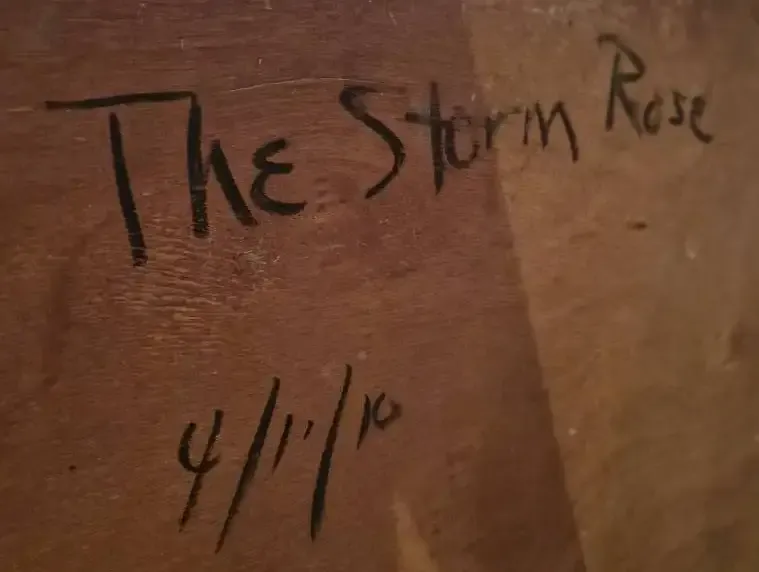 The Storm Rose
4/11/10